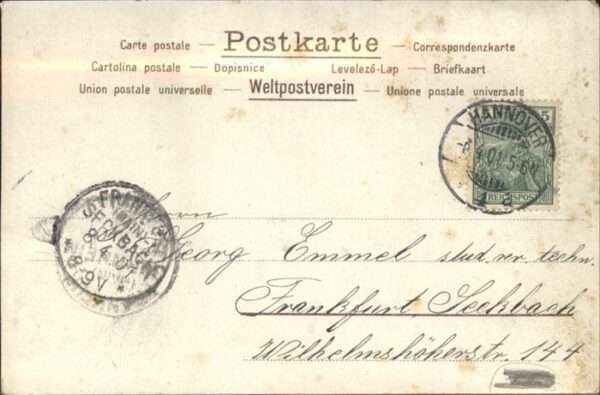 Carte postale — Postkarte — Correspondenzkarte
Cartolina postale — Dopisnice Levelező-Lap — Briefkaart
Union postale universelle — Weltpostverein — Unione postale universale
HANNOVER
5-6N
REICHSPOST
5
Georg Emmel stud. rer. techn.
Frankfurt, Seckbach
Wilhelmshöherstr. 144
8-9V